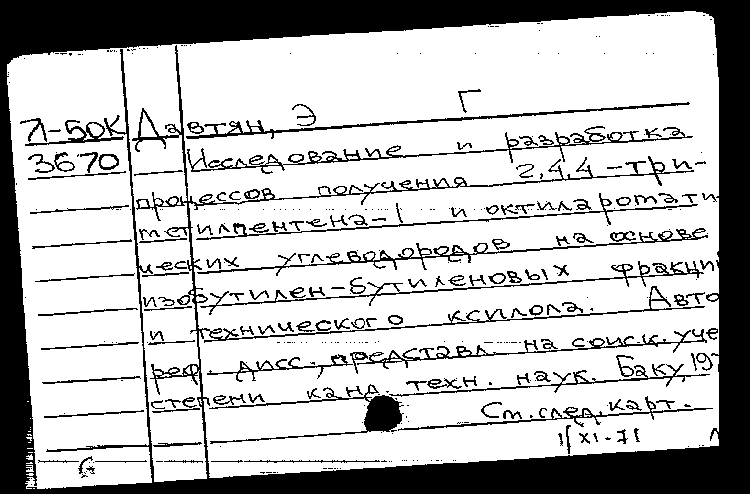 Л-50К Давтян, Э Г
3670 Исследование и разработка
процессов получения 2,4,4-три-
метилпентена-1 и октилароматі-
ческих углеводородов на основе
изобутилен-бутиленовых фракций
и технического ксилола. Авто
реф. дисс., представл. на соиск. уче
степени канд. техн. наук. Баку, 197
См. след. карт.
1/XI-71